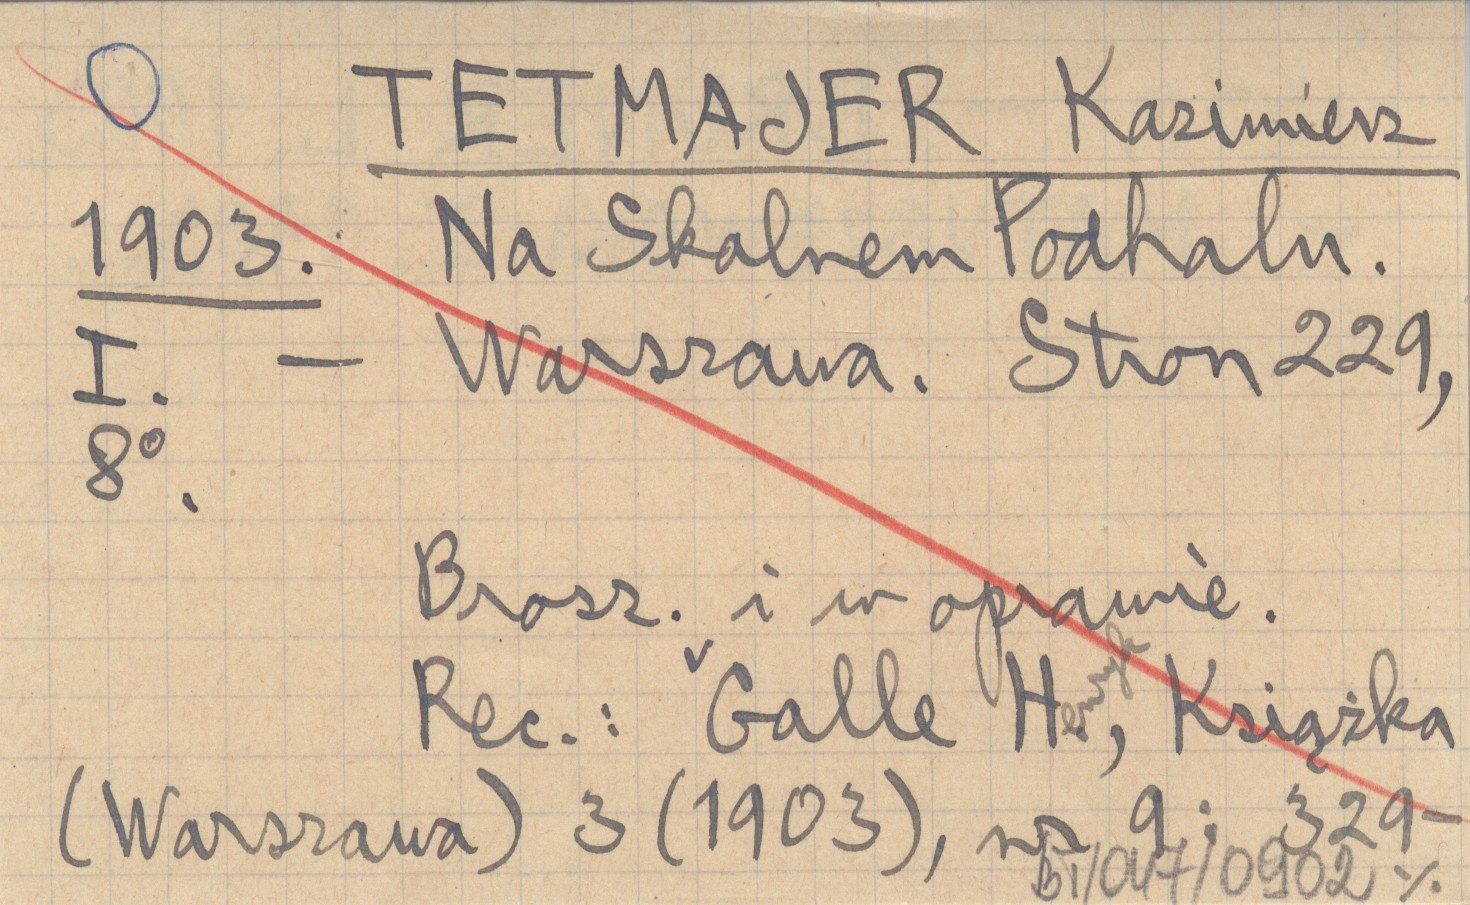 TETMAJER Kazimierz
1903. Na Skalnem Podhalu.
I. — Warszawa. Stron 229,
8°.
Brosz. i w oprawie.
Rec.: Galle Henryk, Książka
(Warszawa) 3 (1903), nr 9; 329-
0902 %.